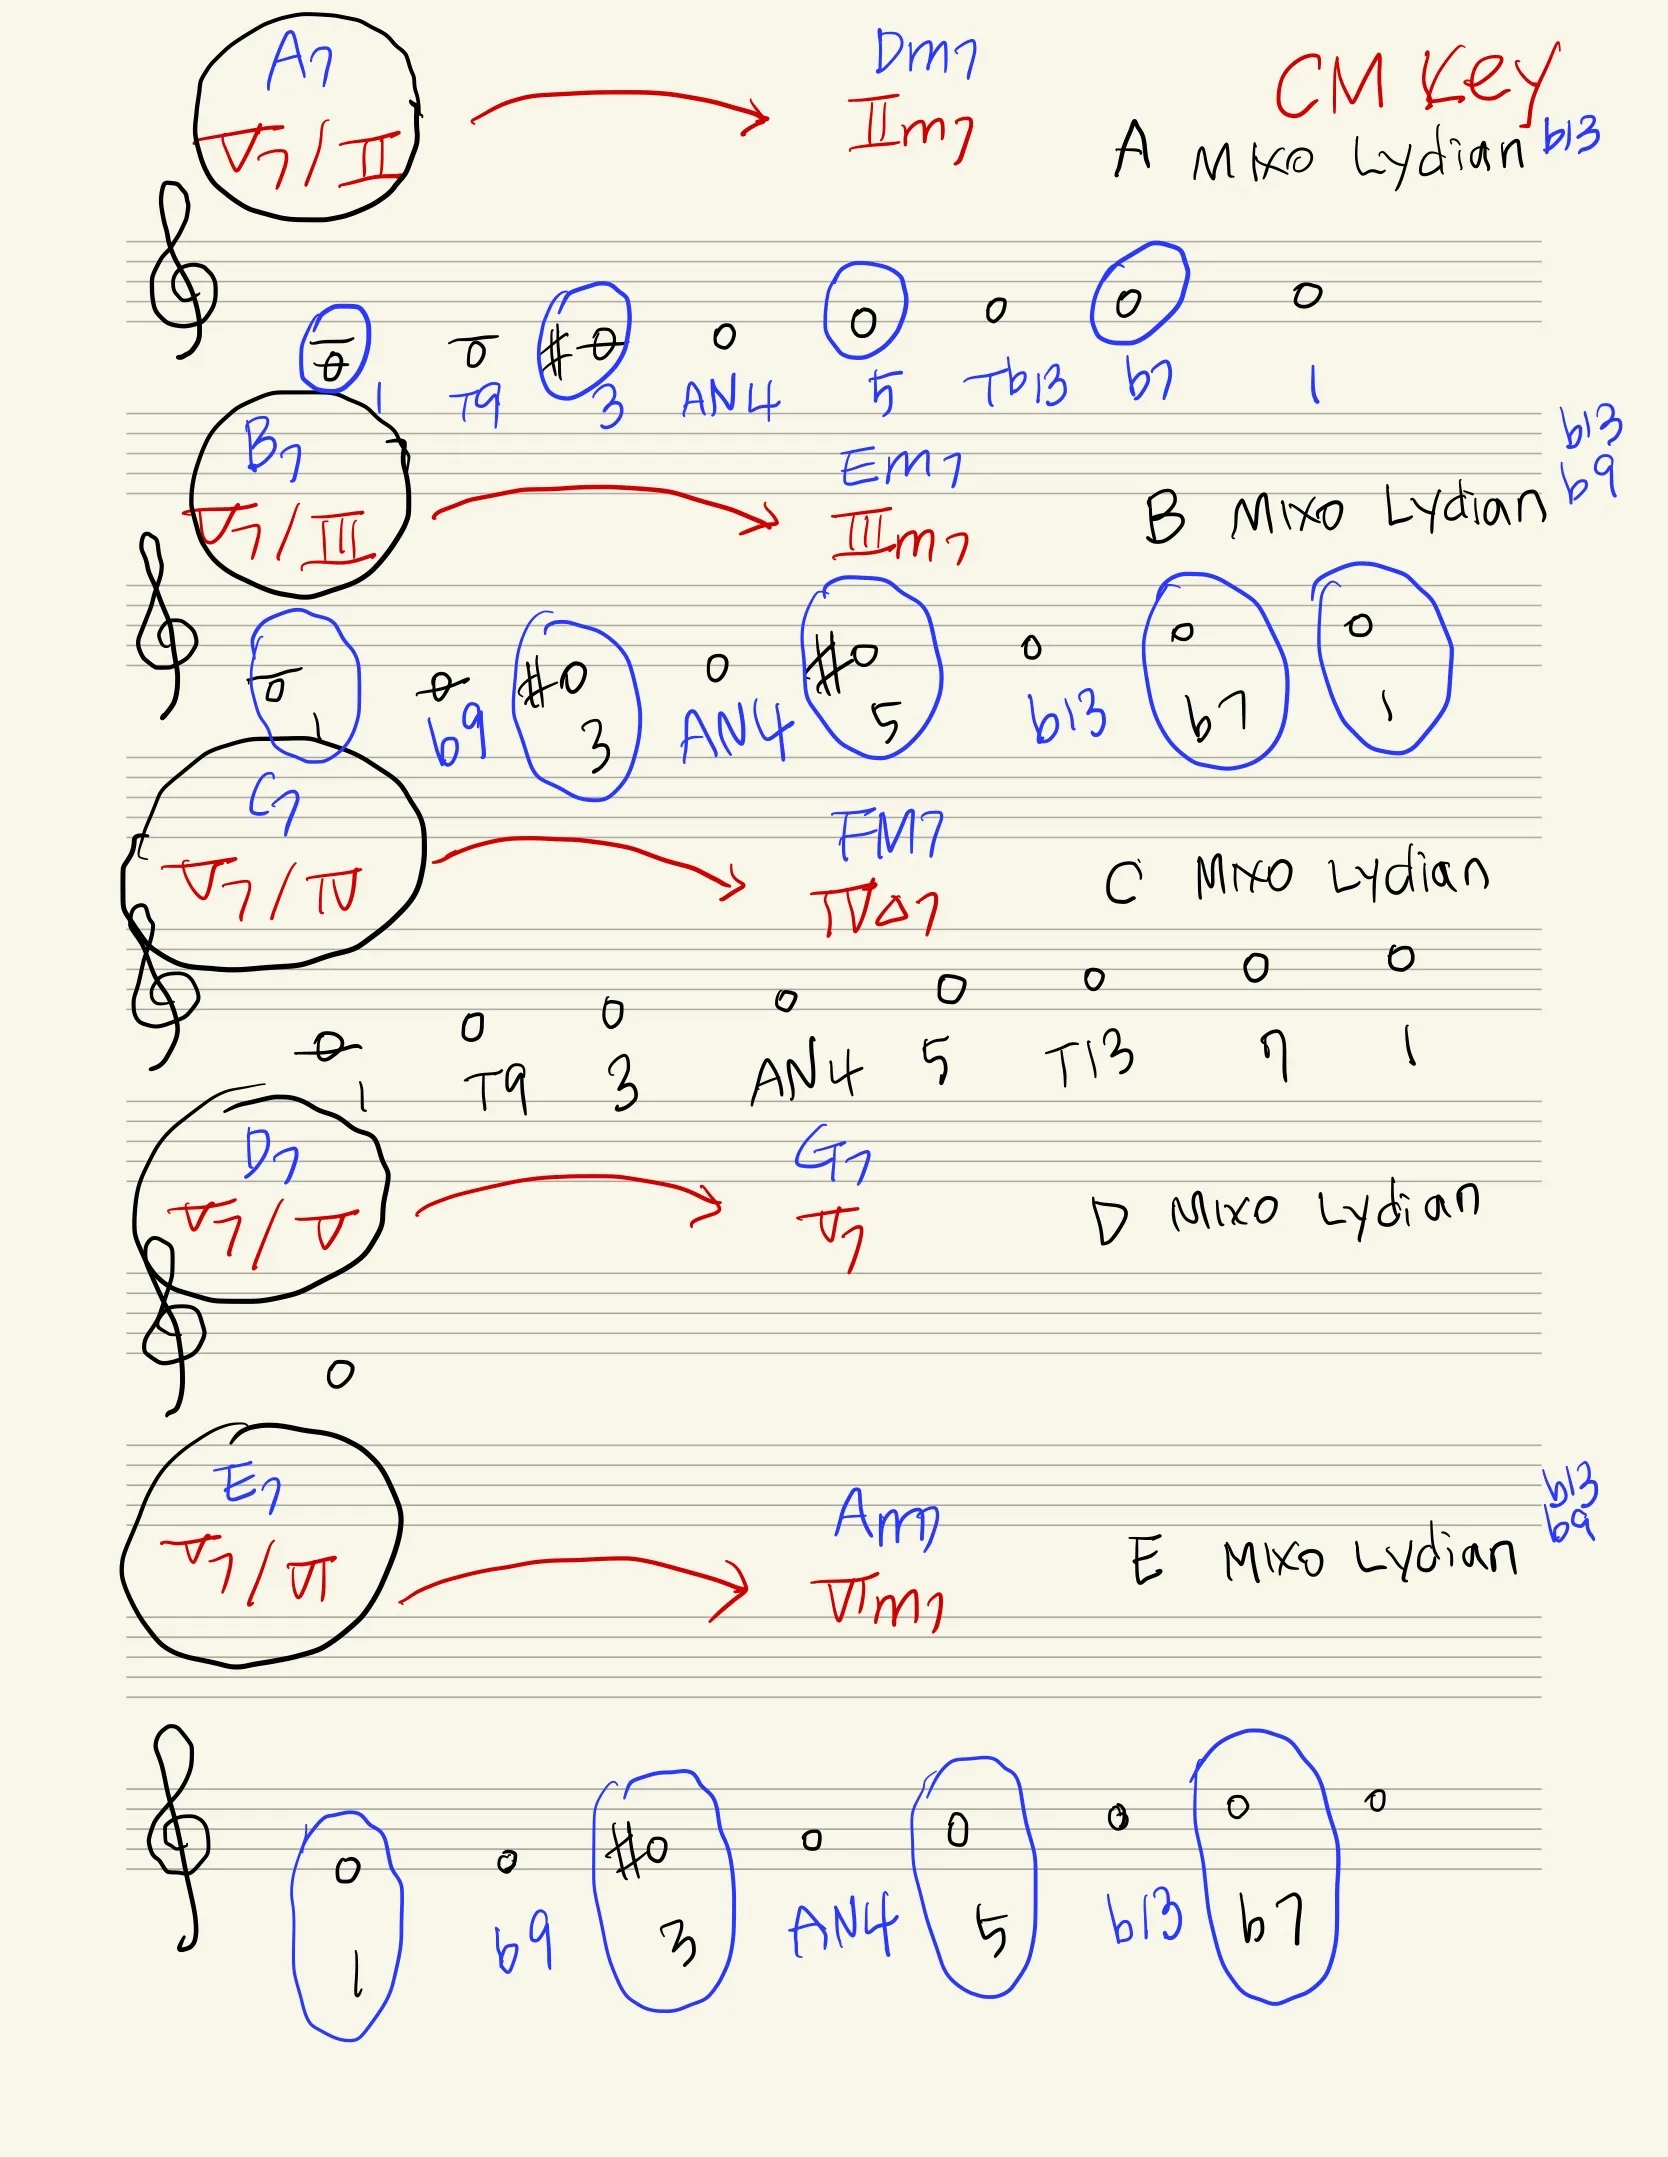 A7 Dm7 CM Key
V7/II IIm7 A Mixo Lydian b13
1 T9 3 AN4 5 Tb13 b7 1
B7 Em7 b13
V7/III IIIm7 B Mixo Lydian b9
1 b9 3 AN4 5 b13 b7 1
C7 FM7
V7/IV IV△7 C Mixo Lydian
1 T9 3 AN4 5 T13 7 1
D7 G7
V7/V V7 D Mixo Lydian
E7 Am7 b13
V7/VI VIm7 E Mixo Lydian b9
1 b9 3 AN4 5 b13 b7